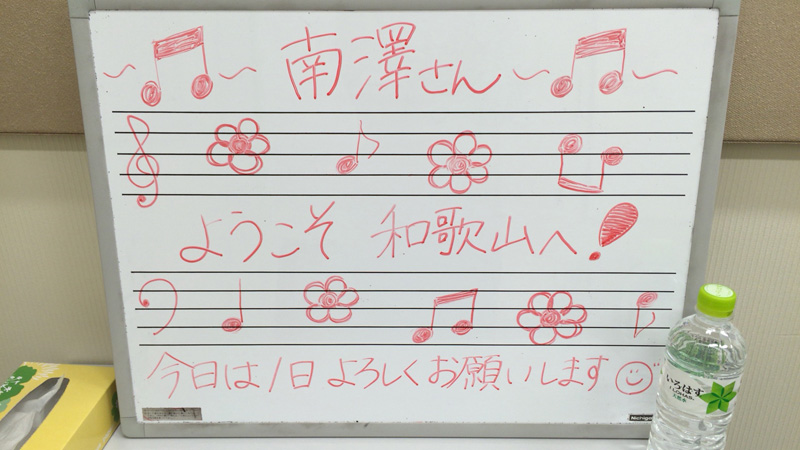 南澤さん
ようこそ 和歌山へ!
今日は1日よろしくお願いします
いろはす
天然水
Nichigo